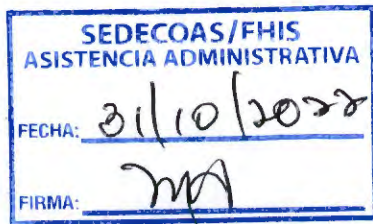 SEDECOAS/FHIS
ASISTENCIA ADMINISTRATIVA
FECHA: 31/10/2022
FIRMA: